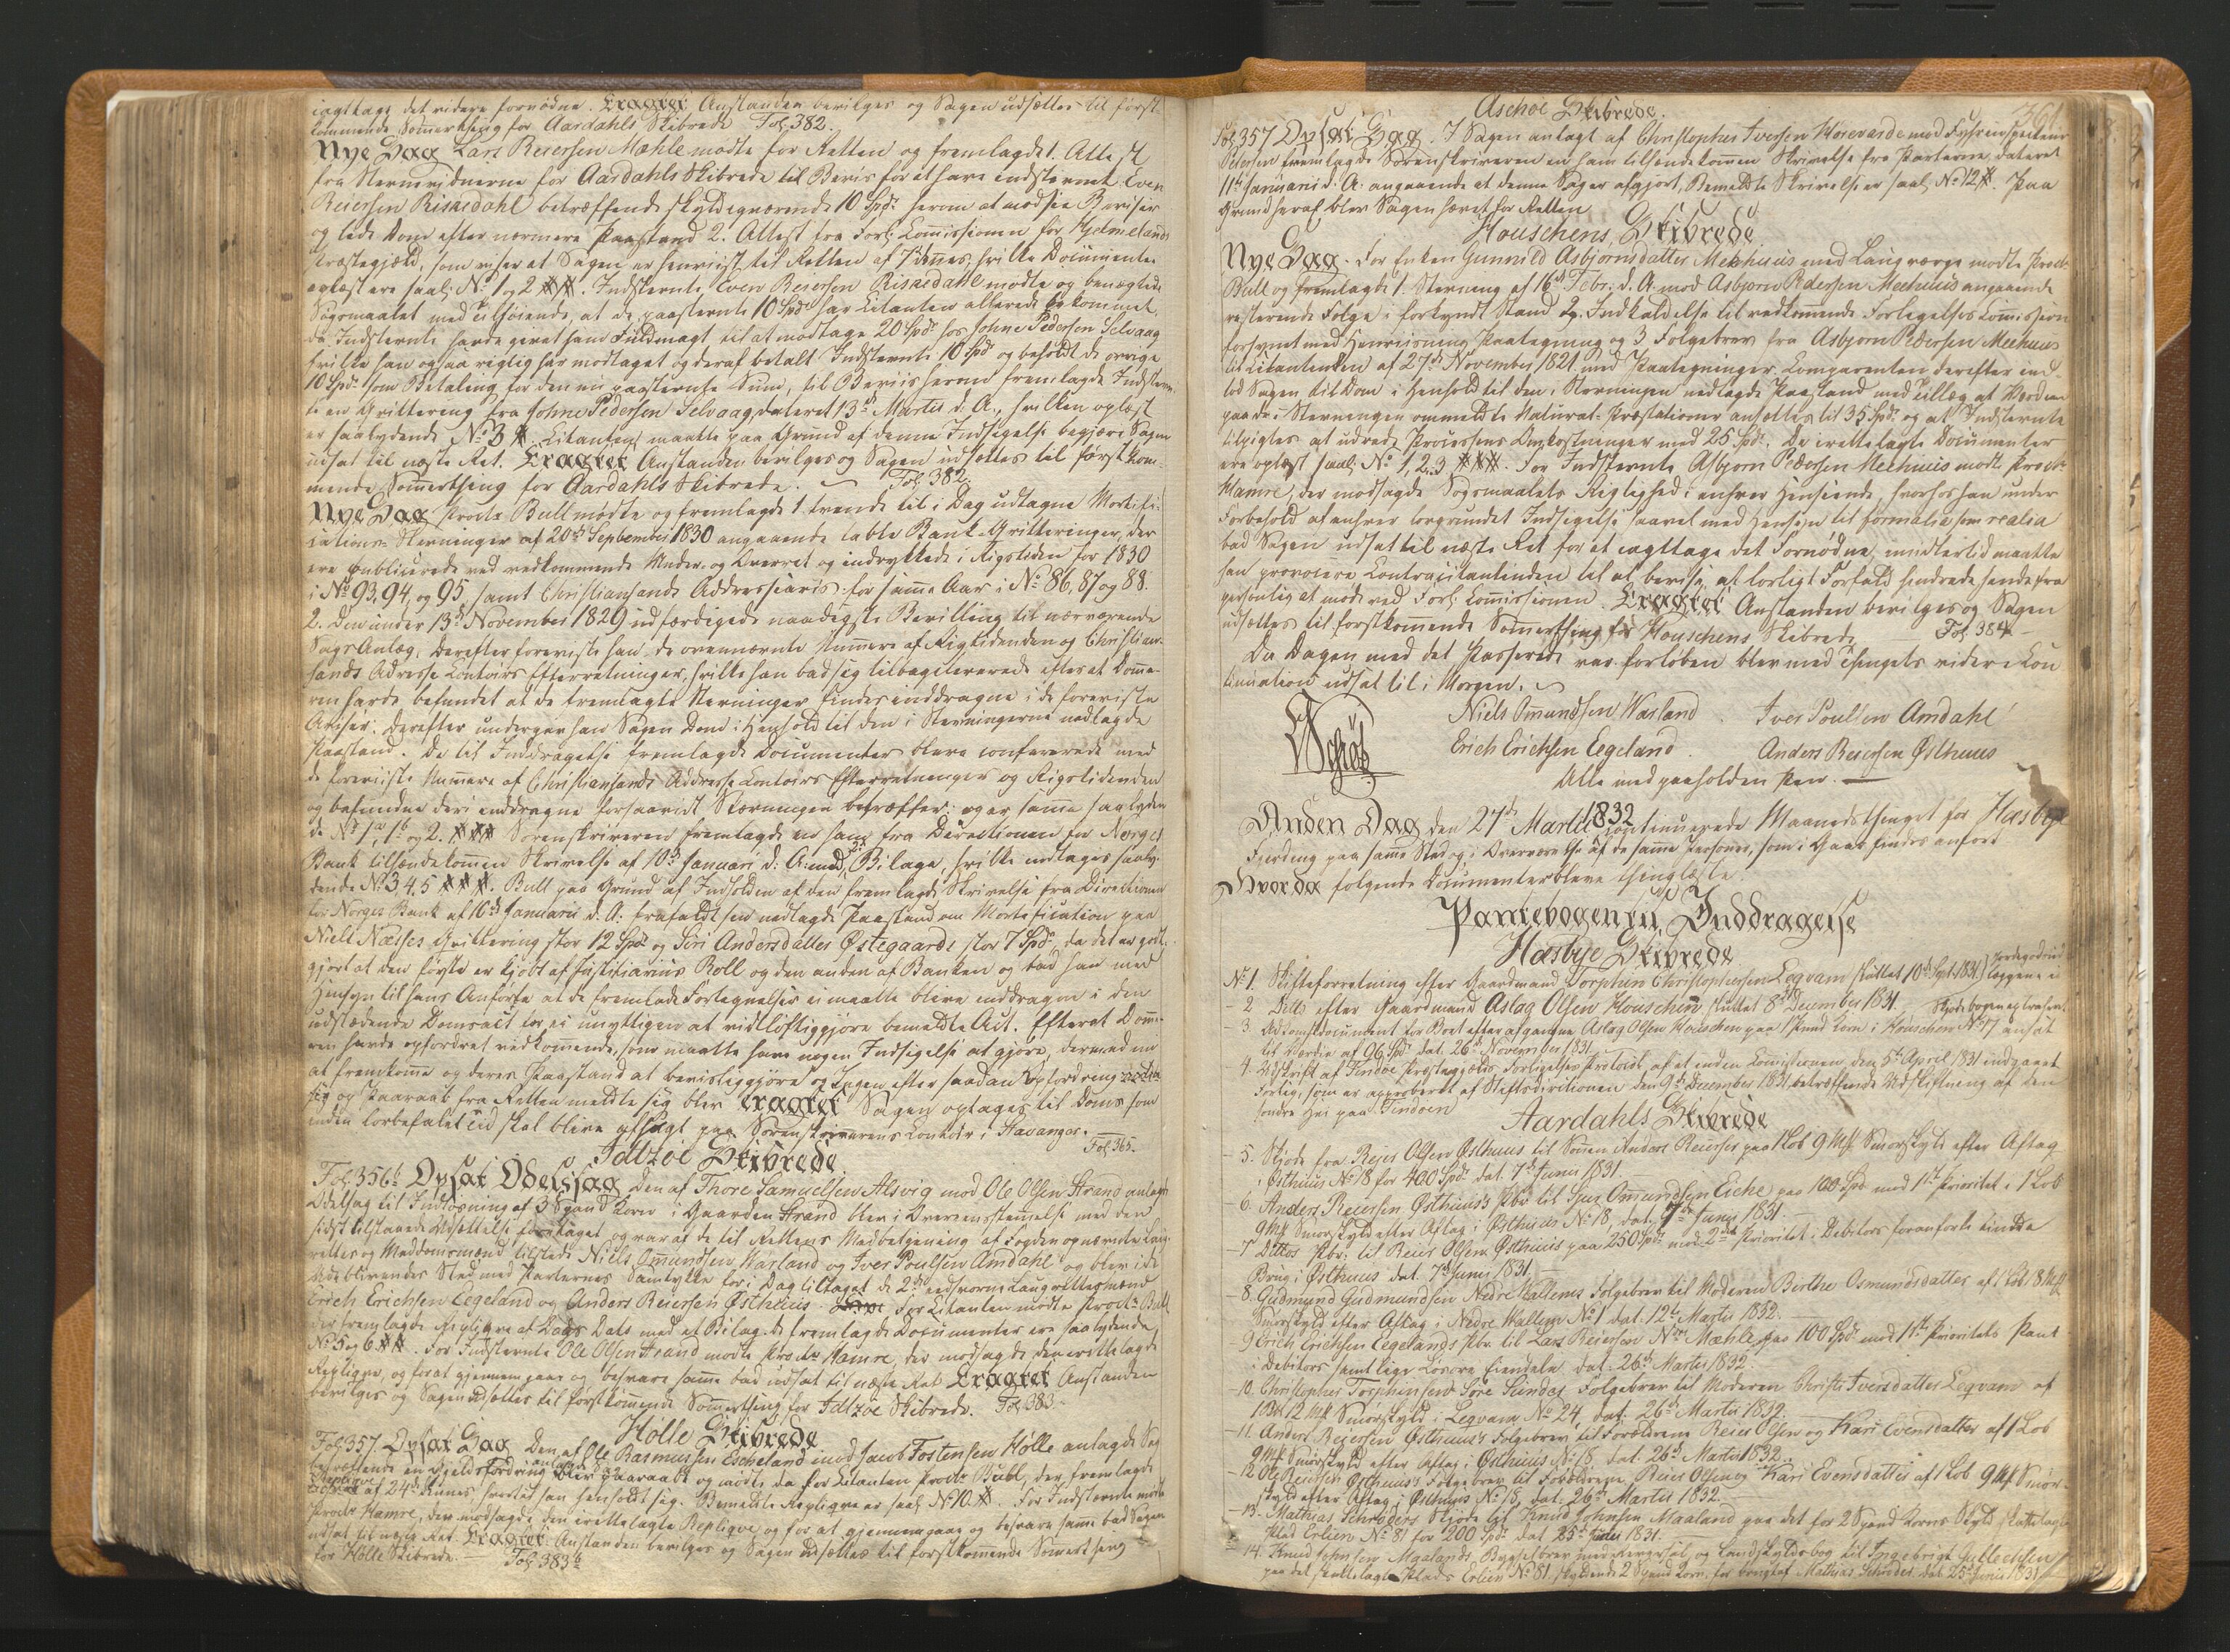 iagttage det videre fornødne. Eragtet Anstanden bevilges og Sagen udsættes til først
kommende Sommerthing for Aardahls Skibrede Fol. 382.
Nye Sag Lars Reiersen Mæhle mødte for Retten og fremlagde 1. Attest
fra Stevnevidnerne for Aardahls Skibrede til Beviis for at have indstevnet Even
Reiersen Riskedahl betræffende skyldigværende 10 Spdr. herom at modsee Beviser
og lide Dom efter nærmere Paastand 2. Attest fra Forl. Commissionen for Hjelmelands
Præstegjæld, som viser at Sagen er henviist til Retten af 7de dennes, hvilke Documenter
oplæst ere saal. No 1 og 2. Indstevnte Even Reiersen Riskedahl mødte og benægtede
Søgsmaalet med Tilføiende, at de paastevnte 10 Spdr har Citanten allerede bekommet,
da Indstevnte havde givet ham Fuldmagt til at modtage 20 Spdr hos Johne Pedersen Selvaag
hvilke han ogsaa rigtig har modtaget og deraf betalt Indstevnte 10 Spdr og beholdt de øvrige
10 Spdr som Betaling for den nu paastevnte Sum, til Beviis herom fremlagde Indstevn-
te en Qvittering fra Johne Pedersen Selvaag, dateret 13de Martii d. A., hvilken oplæst
er saalydende No 3. Citanten maatte paa Grund af denne Indsigelse begjære Sagen
udsat til næste Ret. Eragtet Anstanden bevilges og Sagen udsættes til først kom-
mende Sommerthing for Aardahls Skibrede. Fol. 382.
Nye Sag Procur. Bull mødte og fremlagde 1 trende til i Dag udtagne Mortifi-
cations-Stevninger af 20de September 1830 angaaende tabte Bank-Qvitteringer, der
ere publicerede ved vedkommende Under- og Overret og indrykkede i Rigstiden for 1830
i No 93, 94, og 95, samt Christiansands Addresseavis for samme Aar i No 86, 87 og 88.
2. Den under 13de November 1829 udfærdigede naadigste Bevilling til nærværende
Sags Anlæg. Derefter foreviste han de ovennævnte Numere af Rigstidenden og Christian-
sands Adresse Contoirs Efterretninger, hvilke han bad sig tilbageleverede efter at Domme-
ren havde befundet at de fremlagte Stevninger findes inddragne i de foreviste
Aviser. Derefter undergav han Sagen Dom i Henhold til den i Stevningerne nedlagde
Paastand. De til Inddragelse fremlagde Documenter bleve confererede med
de foreviiste Numere af Christiansands Addresse Contoirs Efterretninger og Rigstidenden
og befundne deri inddragne forsaavidt Stevningen betræffer; og er samme saalyden
de No 1a, 1b og 2. Sorenskriveren fremlagde en ham fra Directionen for Norges
Bank tilhændekommen Skrivelse af 10de Januari d. A. med 2de Bilage, hvilke indtages saaly-
dende No 3 4. 5. Bull paa Grund af Indholden af den fremlagde Skrivelse fra Directionen
for Norges Bank af 10de Januarii d. A. frafaldt sin nedlagde Paastand om Mortification paa
Niels Næsses Qvittering stor 12 Spdr og Siri Andersdatter Østegaards stor 7 Spdr, da det er godt-
gjort at den første er kjøbt af Justitiarius Roll og den anden af Banken og bad han med
Hensyn til hans Anførte at de fremlade Fortegnelser ei maatte blive inddragne i den
udstædende Domsact for ei unyttigen at vidtløftiggjøre bemeldte Act. Efterat Domme-
ren havde opfordret vedkommende, som maatte have nogen Indsigelse at gjøre, dermed nu
at fremkomme og deres Paastand at bevisliggjøre og Ingen efter saadan Opfordring
sig og Paaraab fra Retten meldte sig blev Eragtet Sagen optages til Doms som
inden lovbefalet Tid skal blive afsagt paa Sorenskriverens Contoir i Stavanger. Fol. 365.
Idtzøe Skibrede.
Fol. 356b Opsat Odelssag Den af Thore Samuelsen Alsvig mod Ole Olsen Strand anlagte
Odelsag til Indløsning af 3 Spand Korn i Gaarden Strand blev i Overeensstemmelse med den
sidst tilstaaede Udsættelse foretaget og var af de til Rettens Medbetjening af Fogden opnævnte Laug-
rettes og Meddomsmænd tilstede Niels Omundsen Warland og Iver Poulsen Amdahl og blev i de
Udeblivendes Sted med Parternes Samtykke for i Dag tiltaget de 2de eedsvorne Laugrettesmænd
Erich Erichsen Eegeland og Anders Reiersen Østhuus. For Citanten mødte Procur Bull
der fremlagde Repliqve af Dags Dato med et Bilag. De fremlagde Documenter ere saalydende
No 5 og 6. For Indstevnte Ole Olsen Strand mødte Procur Hamre, der modsagde den irettelagde
Repliqve, og for at gjennemgaae og besvare samme bad udsat til næste Ret. Eragtet Anstanden
bevilges og Sagen udsættes til førstkommende Sommerthing for Idtzøe Skibrede. Fol. 383.
Hølle Skibrede
Fol. 357. Opsat Sag Den af Ole Rasmussen Escheland mod Jacob Tostensen Hølle anlagde Sag
betræffende en Gjeldsfordring blev paaraabt og mødte da for Citanten Procur Bull, der fremlagde
Repliqve af 24de dennes hvortil han henholdt sig. Bemeldte Repliqve er saal. No 10. For Indstevnte mødte
Procur Hamre, der modsagde den irettelagte Repliqve, og for at gjennemgaae og besvare samme bad Sagen
udsat til næste Ret. Eragtet: Anstanden bevilges og Sagen udsættes til førstkommende Sommerthing
for Hølle Skibrede. Fol. 383b
361.
Aschøe Skibrede.
Fol. 357 Opsat Sag. I Sagen anlagt af Christopher Iversen Hosevarde mod Fyhrinspecteur
Pedersen fremlagde Sorenskriveren en ham tilhændekommen Skrivelse fra Parterne, dateret
11te Januarii d. A. angaaende at denne Sag er afgjort. Bemeldte Skrivelse er saal. No 12. Paa
Grund heraf blev Sagen hævet for Retten
Houschens Skibrede
Nye Sag. For Enken Gunnild Asbjørnsdatter Meehuus med Laugværge mødte Procur
Bull og fremlagde 1. Stevning af 16de Febr. d. A. mod Asbjørn Pedersen Meehuus angaaende
resterende Folge i forkyndt Stand 2. Indkaldelse til vedkommende Forligelses Commission
forsynet med Henviisnings Paategning og 3 Folgebrev fra Asbjørn Pedersen Meehuus
til Citantinden af 27de November 1821 med Paategninger. Comparenten derefter ind-
lod Sagen til Dom i Henhold til den i Stevningen nedlagde Paastand med Tillæg at Værdien
paa de i Stevningen ommeldte Natural-Præstationer ansættes til 35 Spdr og at Indstevnte
tilpligtes at udrede Processens Omkostninger med 25 Spdr. De irettelagte Documenter
ere oplæst saal. No 1, 2, 3. For Indstevnte Asbjørn Pedersen Meehuus mødte Procur
Hamre, der modsagde Søgsmaalets Rigtighed i enhver Henseende, hvorhos han under
Forbehold af enhver lovgrundet Indsigelse saavel med Hensyn til formalia som realia
bad Sagen udsat til næste Ret for at iagttage det Fornødne, imidlertid maatte
han provocere Contracitantinden til at bevise, at lovligt Forfald hindrede hende fra
personlig at møde ved Forl. Commissionen. Eragtet Anstanden bevilges og Sagen
udsættes til førstkommende Sommerthing for Houschens Skibrede. Fol. 384
Da Dagen med det Passerede var forløben blev med Thingets videre Con
tinuation udsat til i Morgen.
Niels Omundsen Warland. Iver Poulsen Amdahl
Erich Erichsen Eegeland. Anders Reiersen Østhuus
Alle med paaholden Pen.
Anden Dag den 27de Martii 1832 continuerede Maanedsthinget for Hæsbye
Fjerding paa samme Sted og i Overværelse af de samme Personer, som i Gaar findes anført
Hvorda følgende Documenter bleve thinglæste.
Pantebogen til Inddragelse
Hæsbye Skibrede
No 1. Skifteforretning efter Gaardmand Torphin Christophersen Leqvam sluttet 10de Sept. 1831.
- 2 Ditto efter Gaardmand Aslag Olsen Houschen, sluttet 8de December 1831.
- 3. Adkomstdocument for Boet efter afgangne Aslag Olsen Houschen paa 1 Pund Korn i Houschen No 17 ansat
til Værdie af 96 Spdr dat. 26de November 1831
- 4. Udskrift af Findøe Præstegjælds Forligelses Protocol, af et inden Commissionen den 5te April 1831 indgaaet
Forlig, som er approberet af Stiftsdirectionen den 9de December 1831, betræffende Udskiftning af den
søndre Hei paa Findøen
Aardahls Skibrede
- 5. Skjøde fra Reier Olsen Østhuus til Sønnen Anders Reiersen paa 1 Løb 9 Mk Smørskyld efter Aftag
i Østhuus No 18 for 400 Spdr dat. 7de Junii 1831.
- 6. Anders Reiersen Østhuus's Pbr. til Omundsen Eiche paa 100 Spd mod 1ste Prioritet i 1 Løb
9 Mk Smørskyld efter Aftag i Østhuus No 18, dat. 7de Junii 1831
- 7 Dittos Pbr. til Reier Olsen Østhuus paa 250 Spdr mod 2den Prioritet i Debitors foranførte Eiendom
Brug i Østhuus dat. 7de Junii 1831
- 8. Gudmund Gudmundsen Nedre Vallems Folgebrev til Moderen Berthe Osmundsdatter af 1 Løb 18 Mk
Smørskyld efter Aftag i Nedre Wallem No 1 dat. 12te Martii 1832.
- 9 Erich Erichsen Eegelands Pbr. til Lars Reiersen Mæhle paa 100 Spdr mod 1ste Prioritets Pant
i Debitors samtlige Løsøre Eiendele dat. 26de Martii 1832.
- 10. Christopher Torphinsen Søre Sundes Folgebrev til Moderen Christi Iversdatter Leqvam af
12 Mk Smørskyld i Leqvam No 24, dat. 26de Martii 1832.
- 11. Anders Reiersen Østhuus's Folgebrev til Forældrene Reier Olsen og Kari Evensdatter af 1 Løb
9 Mk Smørskyld efter Aftag i Østhuus No 18, dat. 26de Martii 1832.
- 12 Ole Reiersen Østhuus's Folgebrev til Forældrene Reier Olsen og Kari Evensdatter af 1 Løb 9 Mk Smør-
skyld efter Aftag i Østhuus No 18, dat. 26de Martii 1832.
- 13. Mathias Schrøders Skjøde til Knud Johnsen Maaland paa det for 2 Spand Korns Skyld skattelagte
Plads Erlien No 81 for 200 Spdr dat 25de Junii 1831.
- 14. Knud Johnsen Maalands Bygselbrev med Reverssal og Landskyldsbog til Ingebrigt Gullechsen
paa det skattelagte Plads Erlien No 81, skyldende 2 Spand Korn, før brugt af Mathias Schrøder, dat. 25 Junii 1831